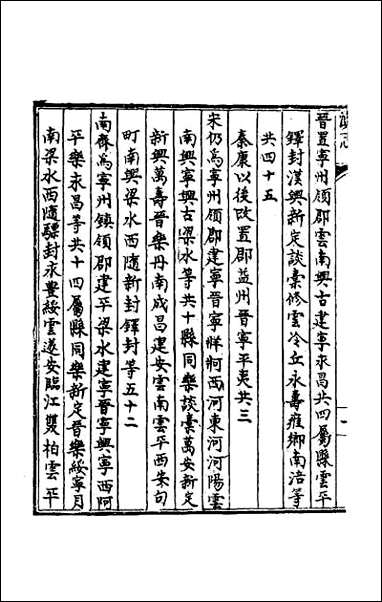 滇志
晉置寧州領郡雲南興古建寧永昌共四屬縣雲平
鐸封漢興新定談稾修雲冷丘永壽雍鄉南涪等
共四十五
秦康以後改置郡益州晉寧平夷共三
宋仍爲寧州領郡建寧晉寧牂牁西河東河河陽雲
南興寧興古梁水等共十縣同樂談稾萬安新定
新興萬壽晉樂丹南成昌建安雲南雲平西安句
町南興梁水西隨新封鐸封等五十二
南齊爲寧州鎮領郡建平梁水建寧晉寧興寧西阿
平樂永昌等共十四屬縣同樂新定晉樂綏寧月
南梁水西隨驃封永豐綏雲遂安臨江雙柏雲平